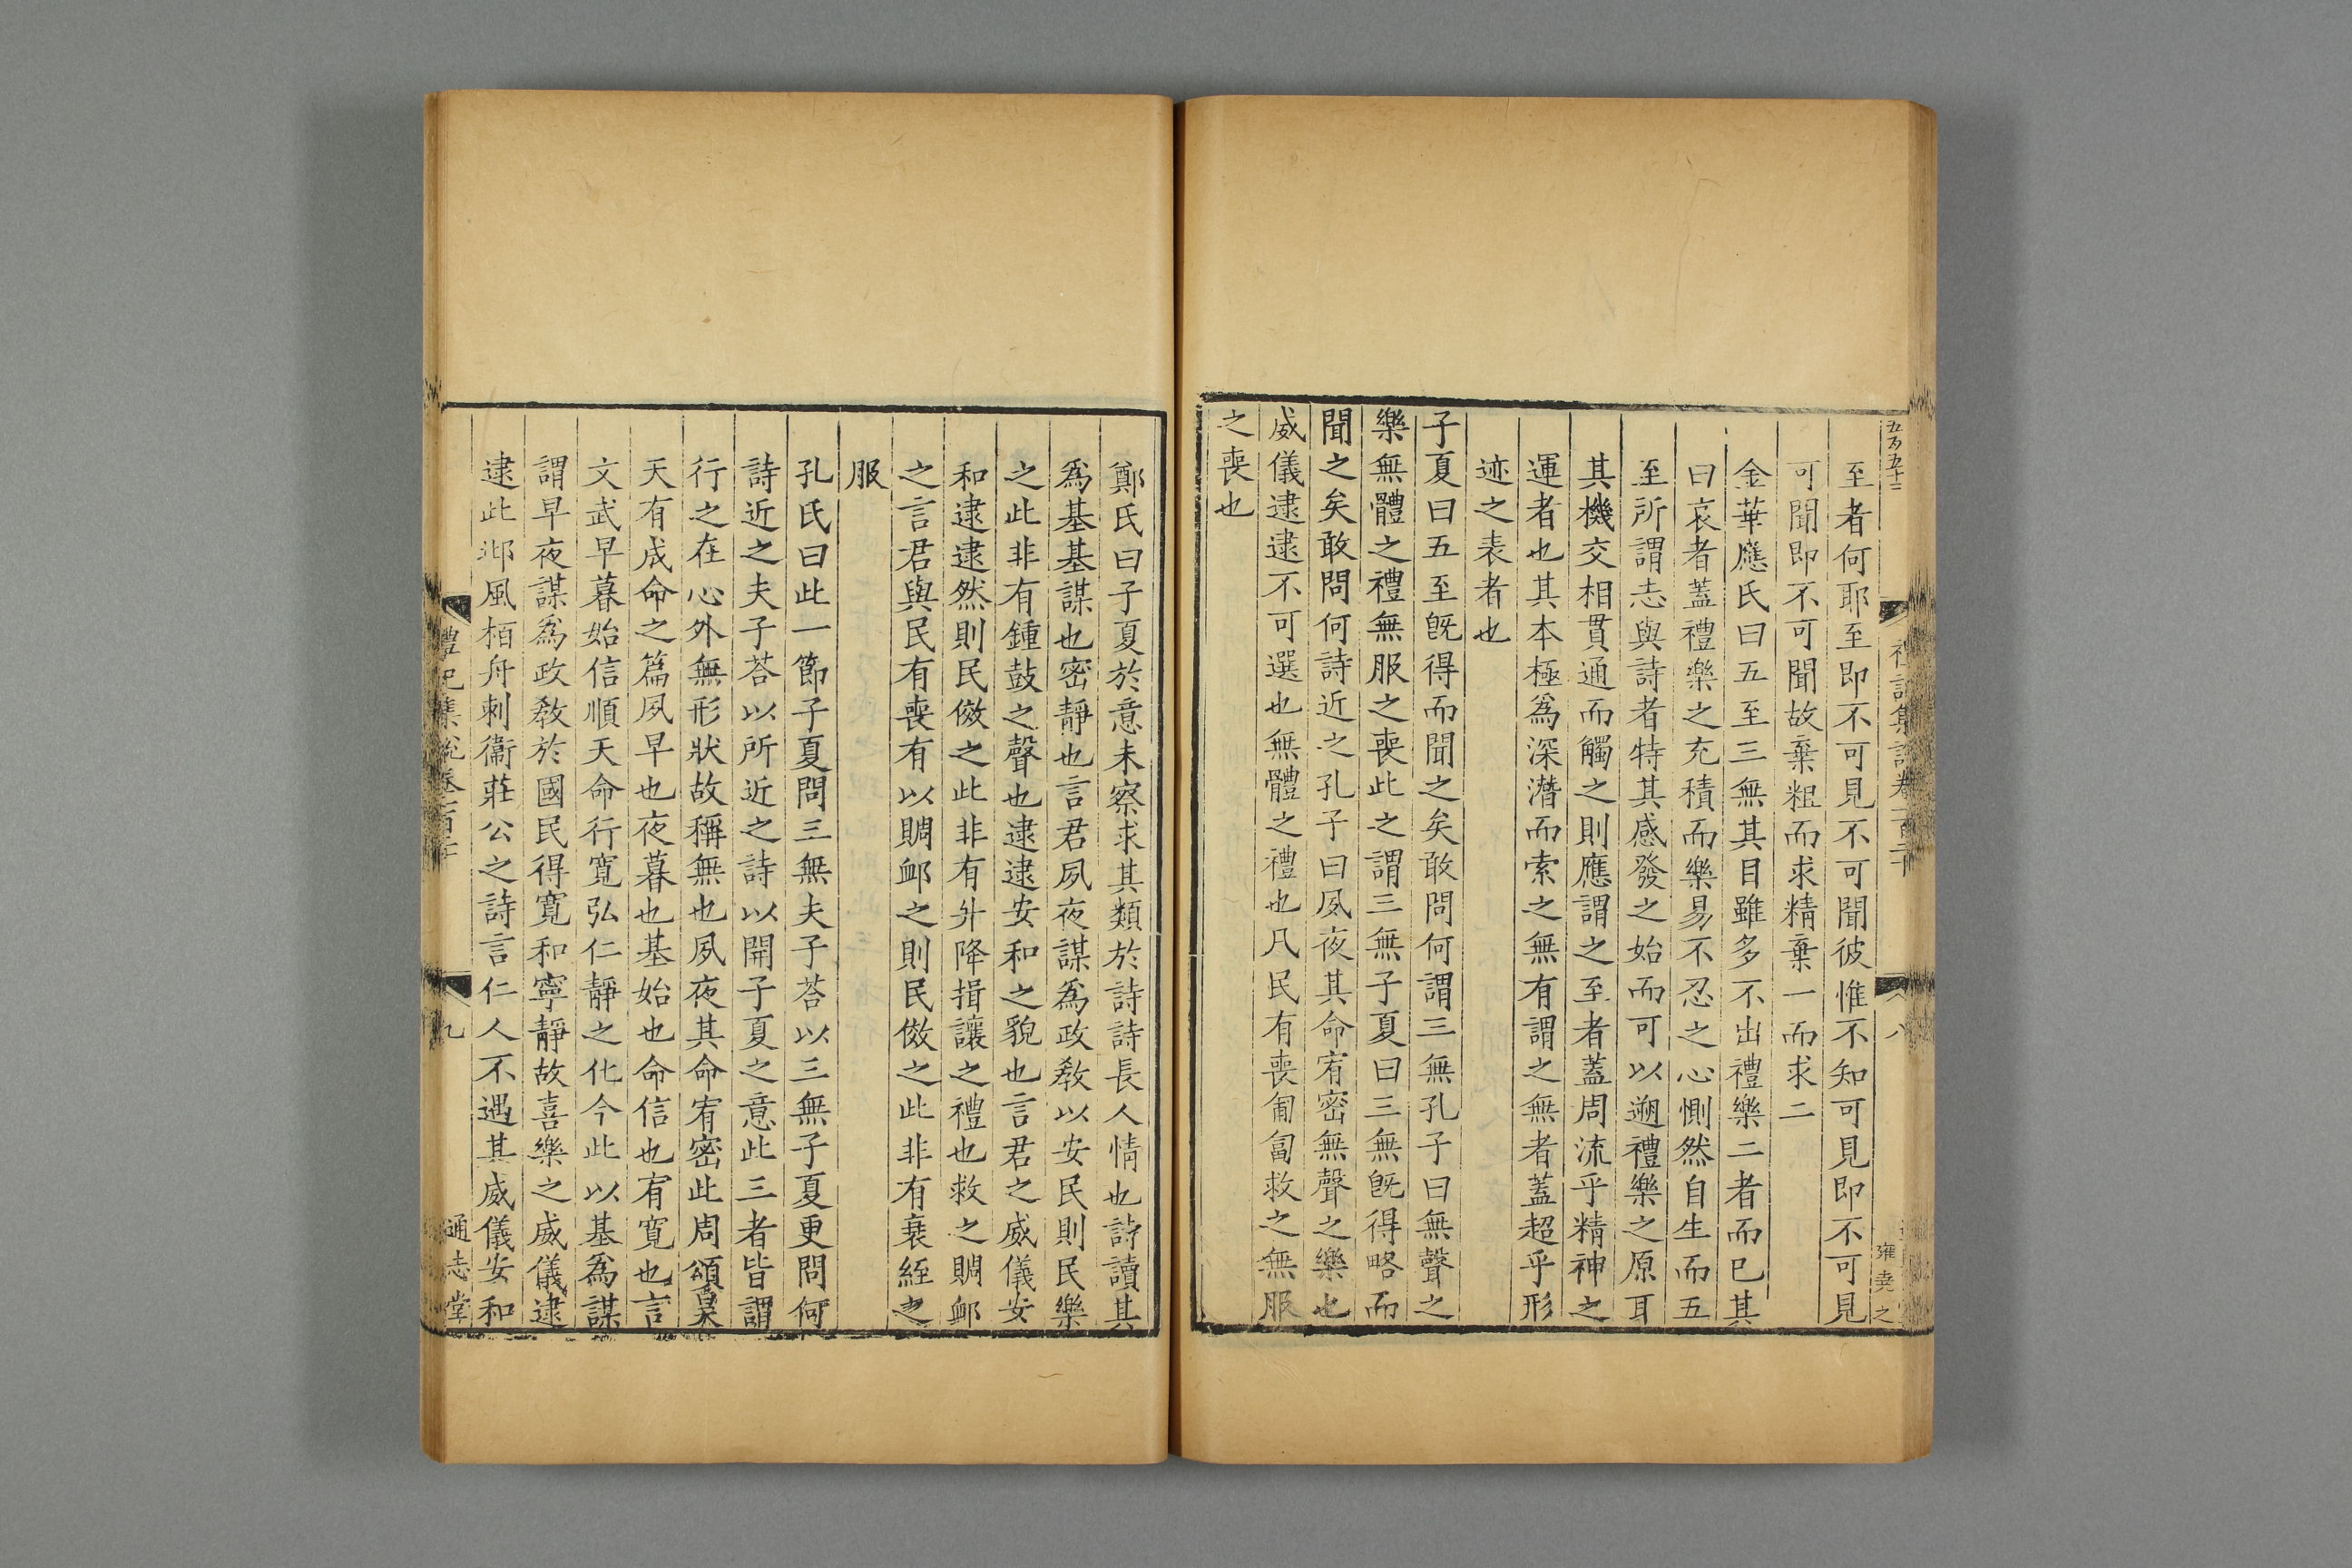 至者何耶至即不可見不可聞彼惟不知可見即不可見
可聞即不可聞故棄粗而求精棄一而求二
金華應氏曰五至三無其目雖多不出禮樂二者而已其
曰哀者蓋禮樂之充積而樂易不忍之心惻然自生而五
至所謂志與詩者特其感發之始而可以遡禮樂之原耳
其機交相貫通而觸之則應謂之至者蓋周流乎精神之
運者也其本極爲深潛而索之無有謂之無者蓋超乎形
迹之表者也
子夏曰五至旣得而聞之矣敢問何謂三無孔子曰無聲之
樂無體之禮無服之喪此之謂三無子夏曰三無旣得略而
聞之矣敢問何詩近之孔子曰夙夜其命宥密無聲之樂也
威儀逮逮不可選也無體之禮也凡民有喪匍匐救之無服
之喪也
鄭氏曰子夏於意未察求其類於詩詩長人情也詩讀其
爲基基謀也密靜也言君夙夜謀爲政教以安民則民樂
之此非有鍾鼓之聲也逮逮安和之貌也言君之威儀安
和逮逮然則民傚之此非有升降揖讓之禮也救之賙卹
之言君與民有喪有以賙卹之則民傚之此非有衰絰之
服
孔氏曰此一節子夏問三無夫子荅以三無子夏更問何
詩近之夫子荅以所近之詩以開子夏之意此三者皆謂
行之在心外無形狀故稱無也夙夜其命宥密此周頌昊
天有成命之篇夙早也夜暮也基始也命信也宥寬也言
文武早暮始信順天命行寬弘仁靜之化今此以基爲謀
謂早夜謀爲政教於國民得寬和寧靜故喜樂之威儀逮
逮此邶風栢舟刺衞莊公之詩言仁人不遇其威儀安和
禮記集說卷一百二十
九
通志堂